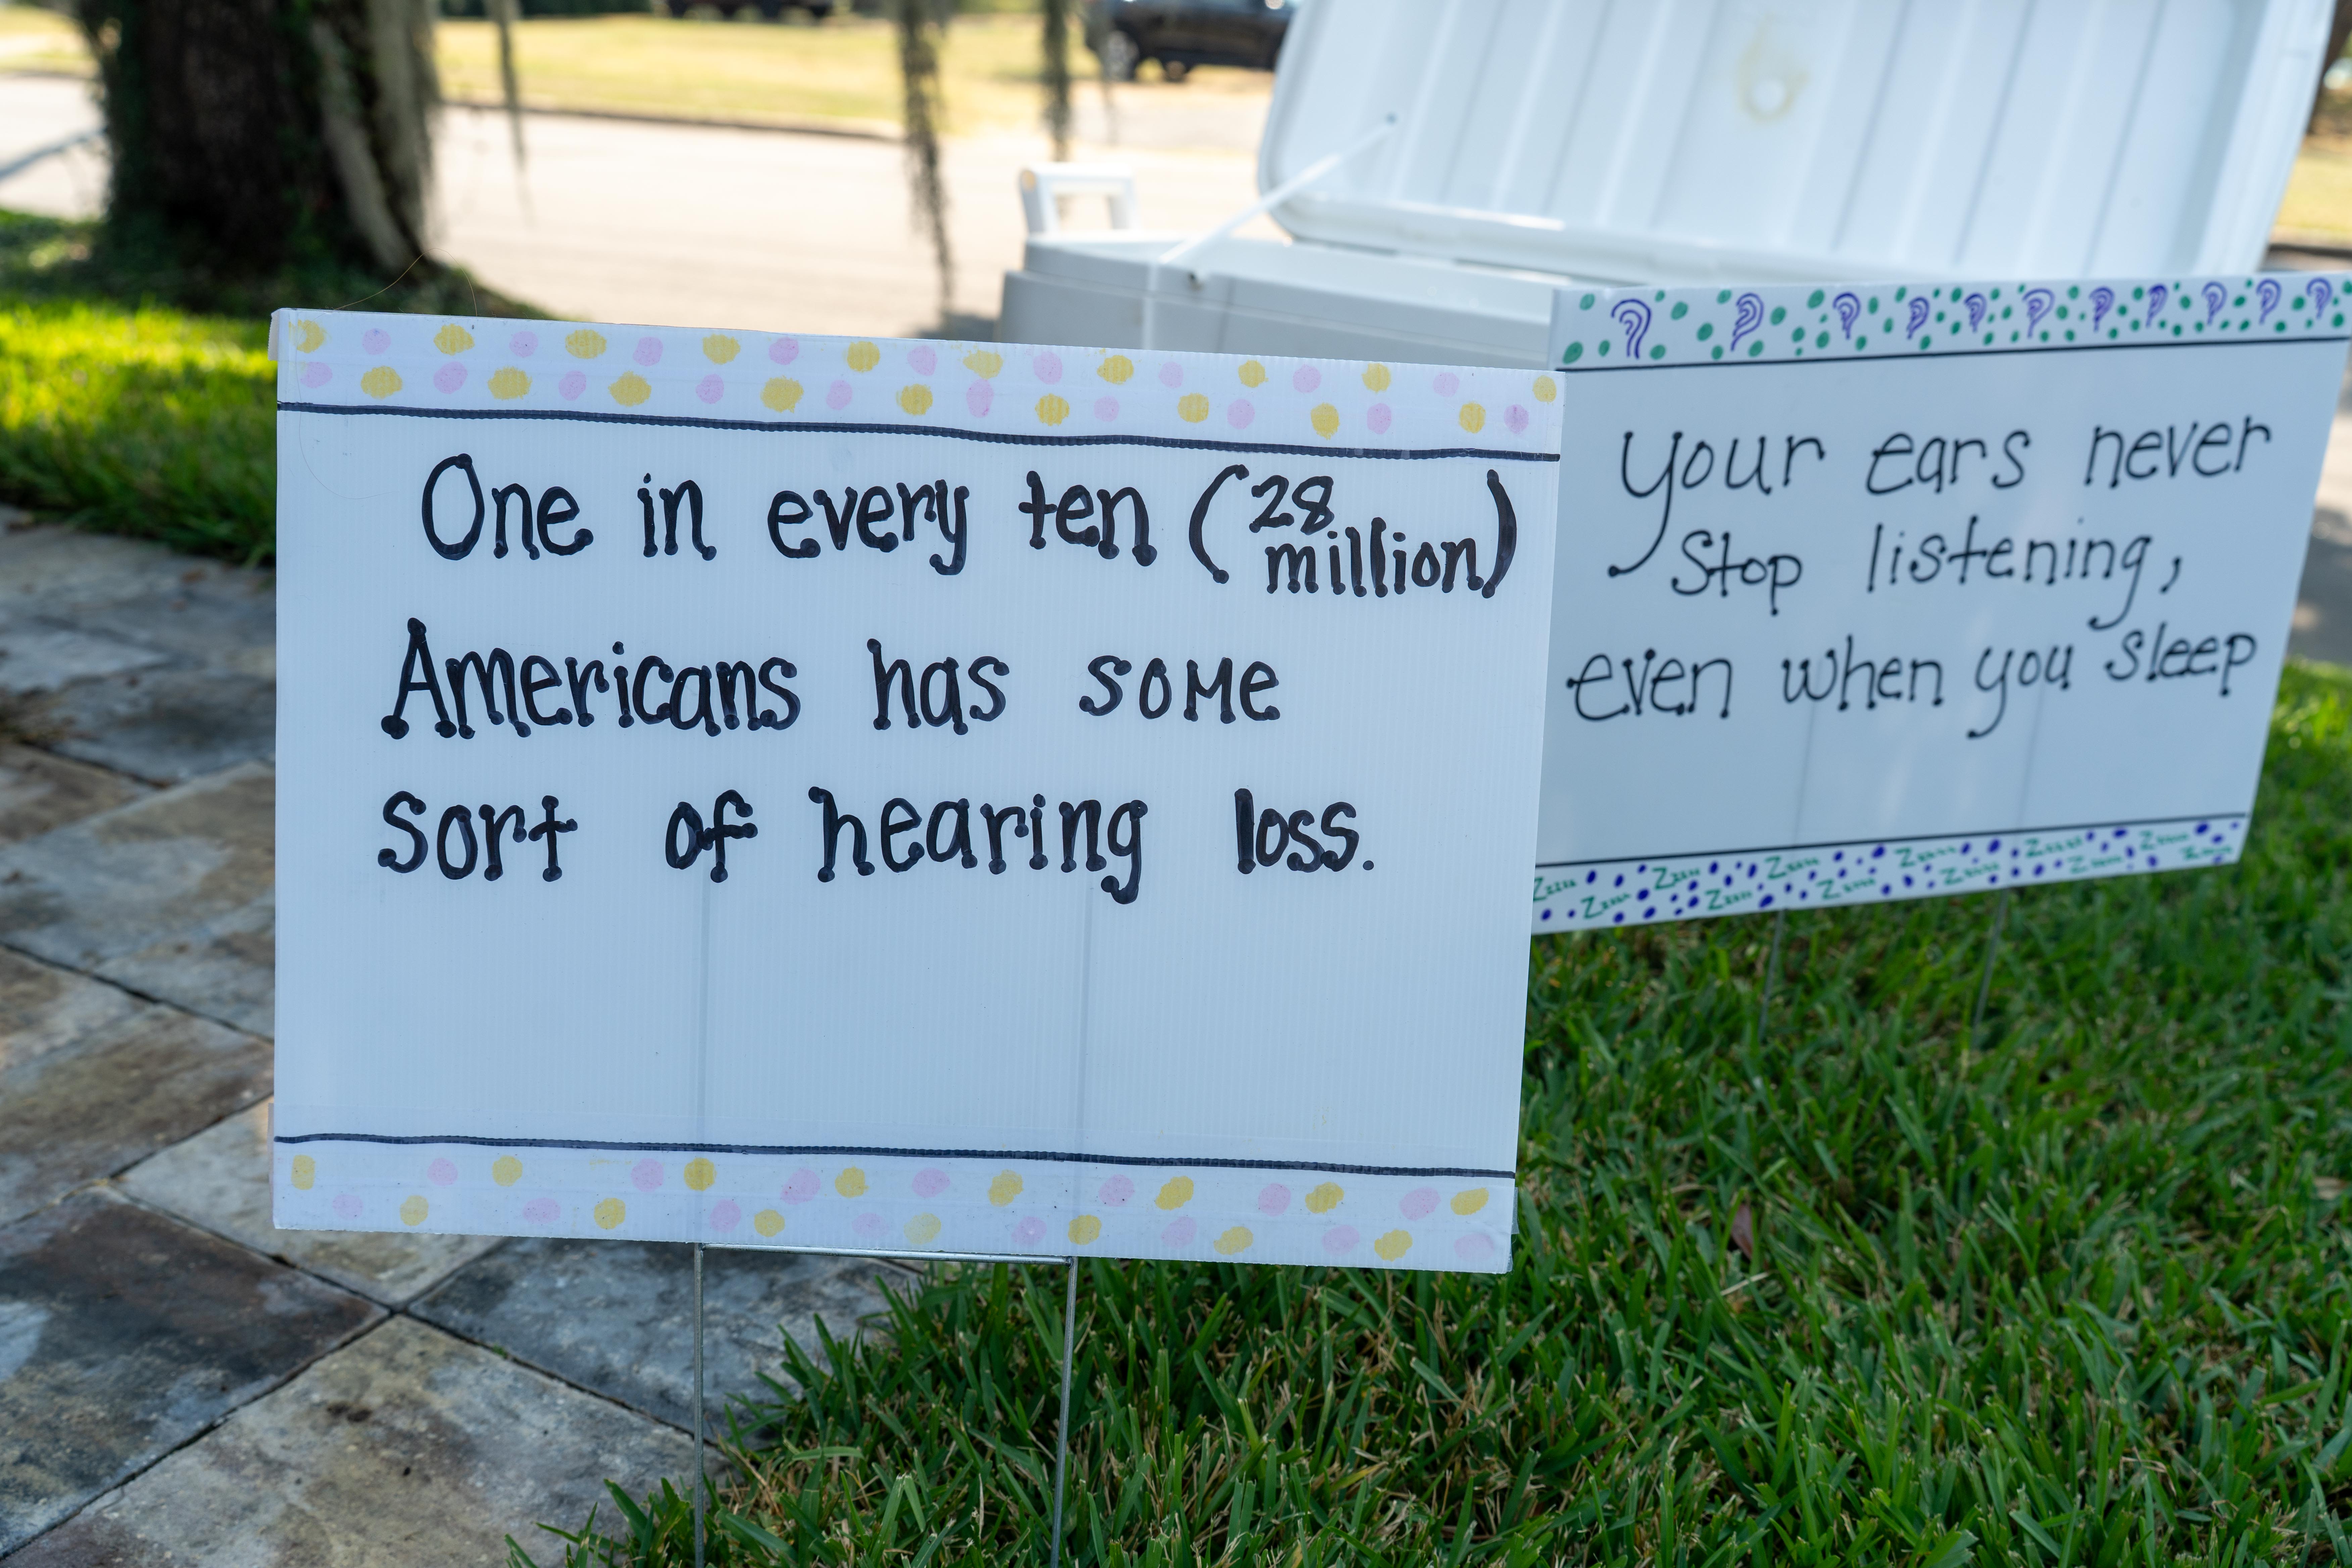 One in every ten (28 million)
Americans has some
sort of hearing loss.
your ears never
Stop listening,
even when you sleep
Zzzzz Zzzzz Zzzzz Zzzzz Zzzzz Zzzzz
Zzzzz Zzzzz Zzzzz Zzzzz Zzzzz Zzzzz